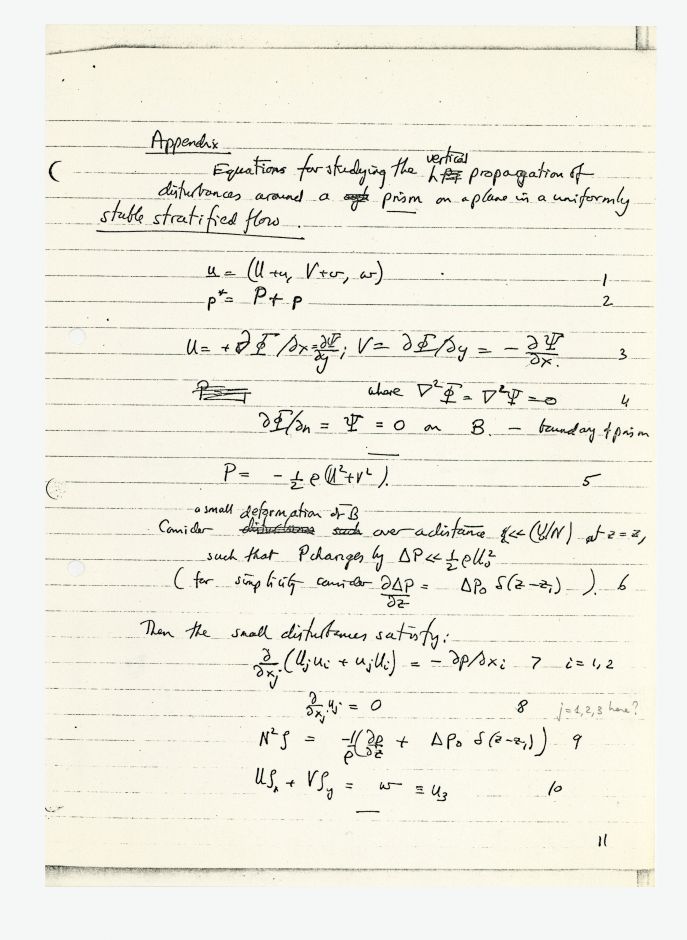 Appendix
Equations for studying the vertical propagation of
disturbances around a prism on a plane in a uniformly
stable stratified flow.
u = (U+u, V+v, w) 1
p* = P + p 2
U = +∂Φ/∂x = ∂Ψ/∂y ; V = ∂Φ/∂y = - ∂Ψ/∂x. 3
where ∇²Φ = ∇²Ψ = 0 4
∂Φ/∂n = Ψ = 0 on B. - boundary of prism
P = - ½ ρ (U²+V²). 5
a small deformation of B
Consider over a distance << (U/N) at z = z,
such that P changes by ΔP << ½ ρU₀²
(for simplicity consider ∂ΔP/∂z = ΔP₀ δ(z-z₁) ). 6
Then the small disturbances satisfy:
∂/∂xj (Uj ui + uj Ui) = - ∂p/∂xi 7 i = 1, 2
∂/∂xj uj = 0 8 j=1,2,3 here?
N² ζ = -1/ρ (∂p/∂z + ΔP₀ δ(z-z₁)) 9
Uζx + Vζy = w ≡ u₃ 10
11